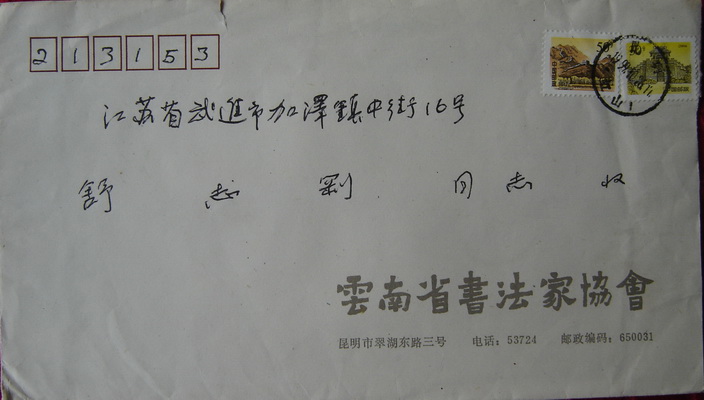 213153
江苏省武進市加澤鎮中街16号
舒志剛 同志 收
雲南省書法家協會
昆明市翠湖东路三号 电话：53724 邮政编码：650031